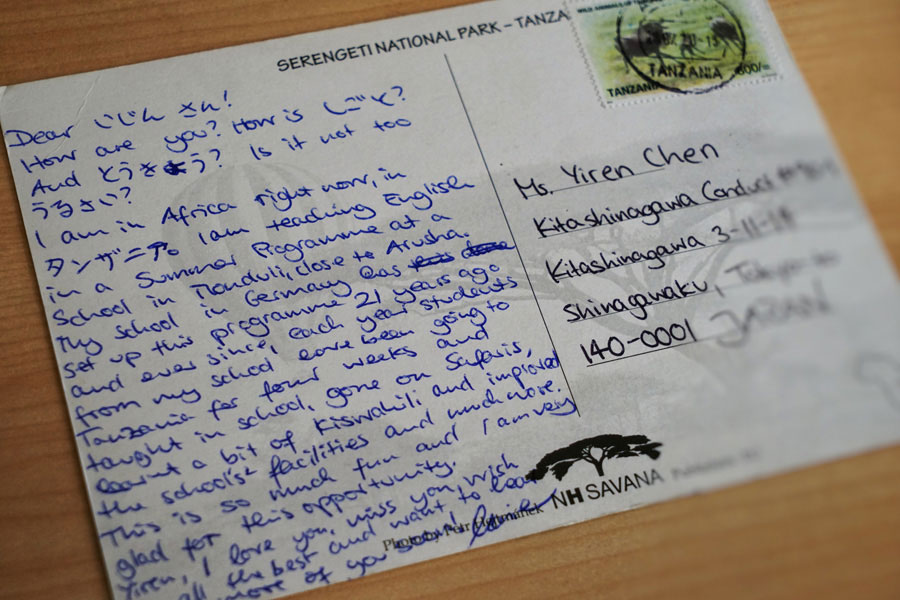 SERENGETI NATIONAL PARK - TANZA
TANZANIA
600/=
TANZANIA
Dear いじん さん!
How are you? How is しごと?
And とうきょう? Is it not too
うるさい?
I am in Africa right now, in
タンザニア. I am teaching English
in a Summer Programme at a
School in Monduli, close to Arusha.
My school in Germany has
set up this programme 21 years ago
and ever since, each year students
from my school have been going to
Tanzania for four weeks and
taught in school, gone on Safaris,
learnt a bit of Kiswahili and improved
the school's facilities and much more.
This is so much fun and I am very
glad for this opportunity.
Yiren, I love you, miss you, wish
all the best and want to hear
more of you soon!
Ms. Yiren Chen
Kitashinagawa Conduct
Kitashinagawa 3-11-
Shinagawaku,
140-0001 JAPAN
NH SAVANA
Photo by